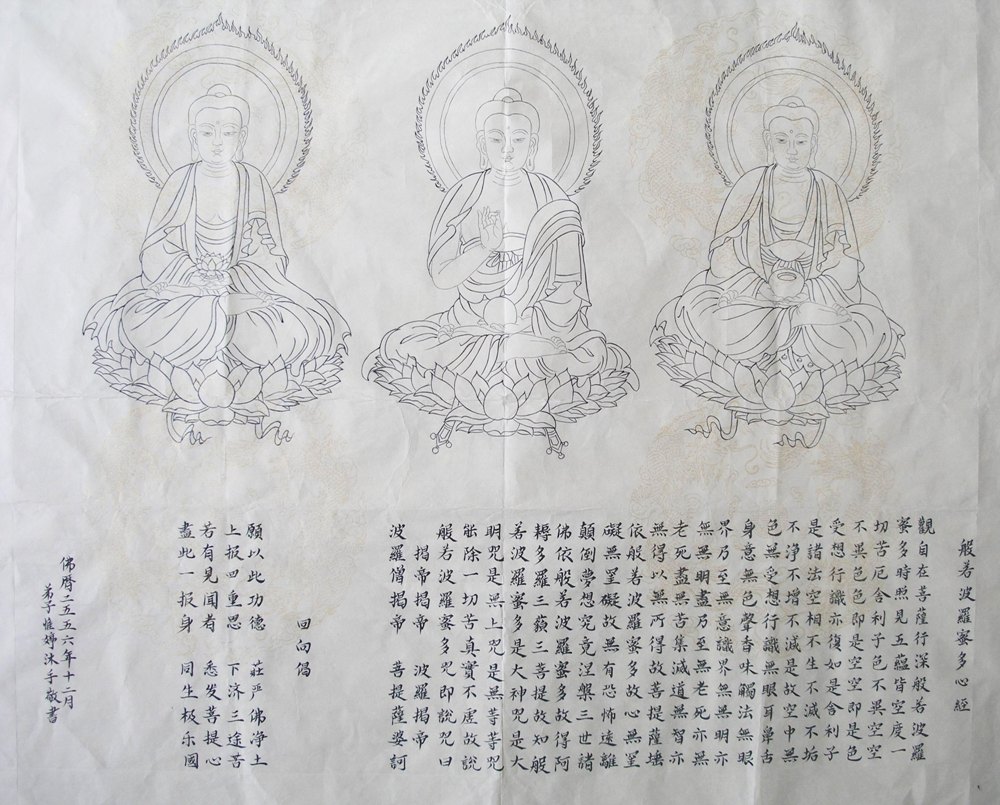 般若波羅蜜多心經
觀自在菩薩行深般若波羅
蜜多時照見五蘊皆空度一
切苦厄舍利子色不異空空
不異色色即是空空即是色
受想行識亦復如是舍利子
是諸法空相不生不滅不垢
不净不增不減是故空中無
色無受想行識無眼耳鼻舌
身意無色聲香味觸法無眼
界乃至無意識界無無明亦
無無明盡乃至無老死亦無
老死盡無苦集滅道無智亦
無得以無所得故菩提薩埵
依般若波羅蜜多故心無罣
礙無罣礙故無有恐怖遠離
顛倒夢想究竟涅槃三世諸
佛依般若波羅蜜多故得阿
耨多羅三藐三菩提故知般
若波羅蜜多是大神咒是大
明咒是無上咒是無等等咒
能除一切苦真實不虛故說
般若波羅蜜多咒即說咒曰
揭帝揭帝 波羅揭帝
波羅僧揭帝 菩提薩婆訶
回向偈
願以此功德 莊严佛净土
上报四重恩 下济三途苦
若有見闻者 悉发菩提心
盡此一报身 同生极乐國
佛曆二五五六年十二月
弟子惟婷沐手敬書